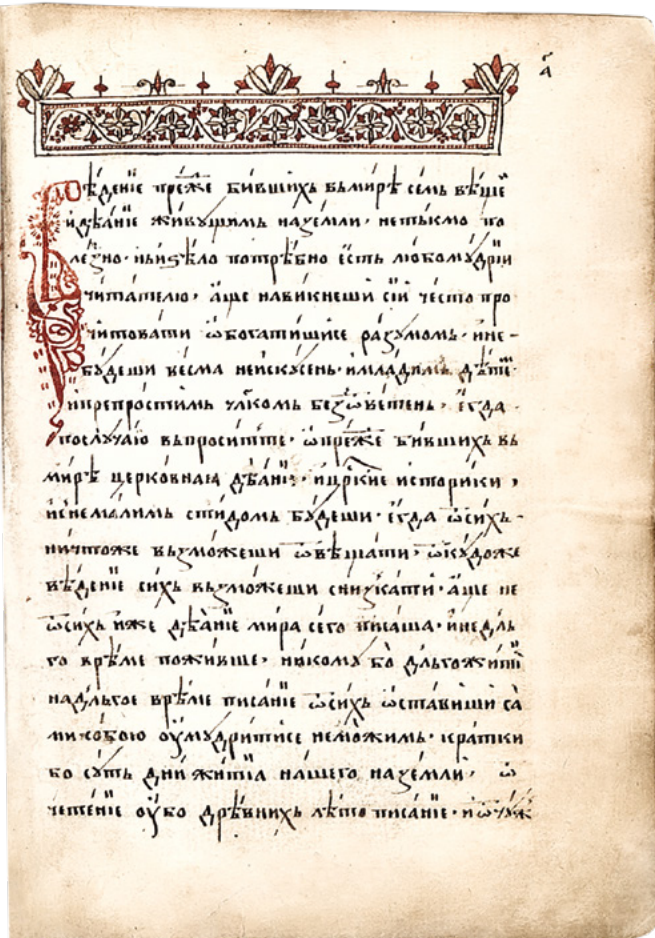 а҃
Повѣденіе пре́же би́вшихъ вьми́рѣ се́мь вѣ́ще
и҆дѣѧ́ніе живꙋ́щимь назе́мли· не ть́кмо по
ле́зно· нь и҆ѕѣло̀ потрѣ́бно є҆́сть любомꙋ́дрїи
чита́телю· а҆́ще нави́кнеши сїѝ че́сто про
читова́ти ѡ҆богати́шисе ра́зꙋмомь· и҆не-
бꙋ́деши ве́сма неискꙋ́сень· и҆мла́димь дѣ́те
и҆препро́стимь чл҃комь безѿве́тень· є҆гда̀
послꙋ́чаю вьпроси́тте· ѡ҆пре́же би́вшихь вь
ми́рѣ церко́внаꙗ дѣѧ́ніе· и҆цр҃кіе исто́рики,
и҆снема́лимь сти́домь бꙋ́деши· є҆гда̀ ѿси́хь-
ничто́же вьзмо́жеши ѿвѣща́ти, ѿкꙋ́доже
вѣ́деніе си́хь вьзмо́жеши снизка́ти· а҆́ще не
ѿси́хь и҆́же дѣѧ́ніе ми́ра сего̀ писа́ша· и҆недль
го врѣ́ме пожи́вше· нико́мꙋ бо̀ дльгожи́тї
нади́льгое врѣ́ме писа́ніе ѿси́хь ѡ҆ста́виши са́
ми собо́ю оу҆мꙋ́дритисе не мо́жимь· кра́тки
бо сꙋ́ть дни́ жи́тїа на́шего назе́мли· ѡ҆
чете́ніе оу҆́бо дрѣ́внихь лѣ́то писа́ніе· и҆ѡ҆чꙋж